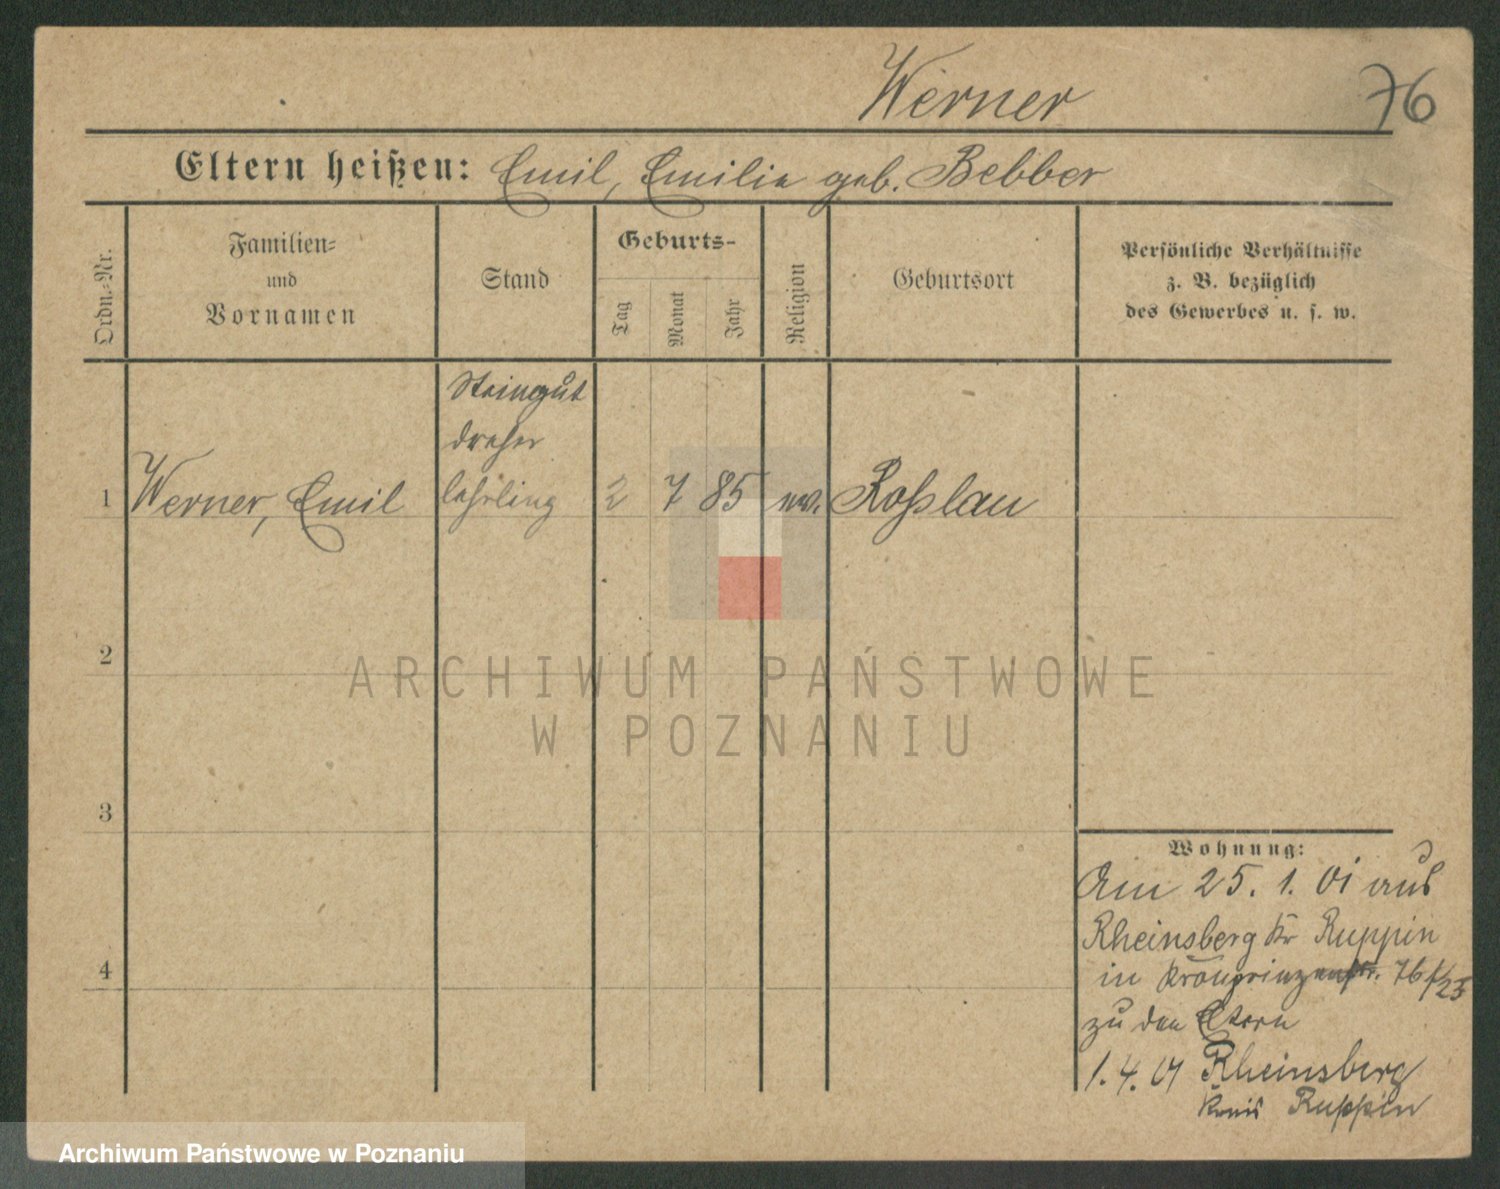 Werner 76
Eltern heißen: Emil, Emilie geb. Bebber
Ordn.-Nr.
Familien-
und
Vornamen
Stand
Geburts-
Tag
Monat
Jahr
Religion
Geburtsort
Persönliche Verhältnisse
z. B. bezüglich
des Gewerbes u. s. w.
Steingut
dreher
1 Werner, Emil lehrling 2 7 85 ev. Roßlau
2
3
4
Wohnung:
Am 25. 1. 01 aus
Rheinsberg Kr Ruppin
in Kronprinzenstr. 76
zu den Eltern
1. 4. 01 Rheinsberg
Kreis Ruppin
ARCHIWUM PAŃSTWOWE
W POZNANIU
Archiwum Państwowe w Poznaniu